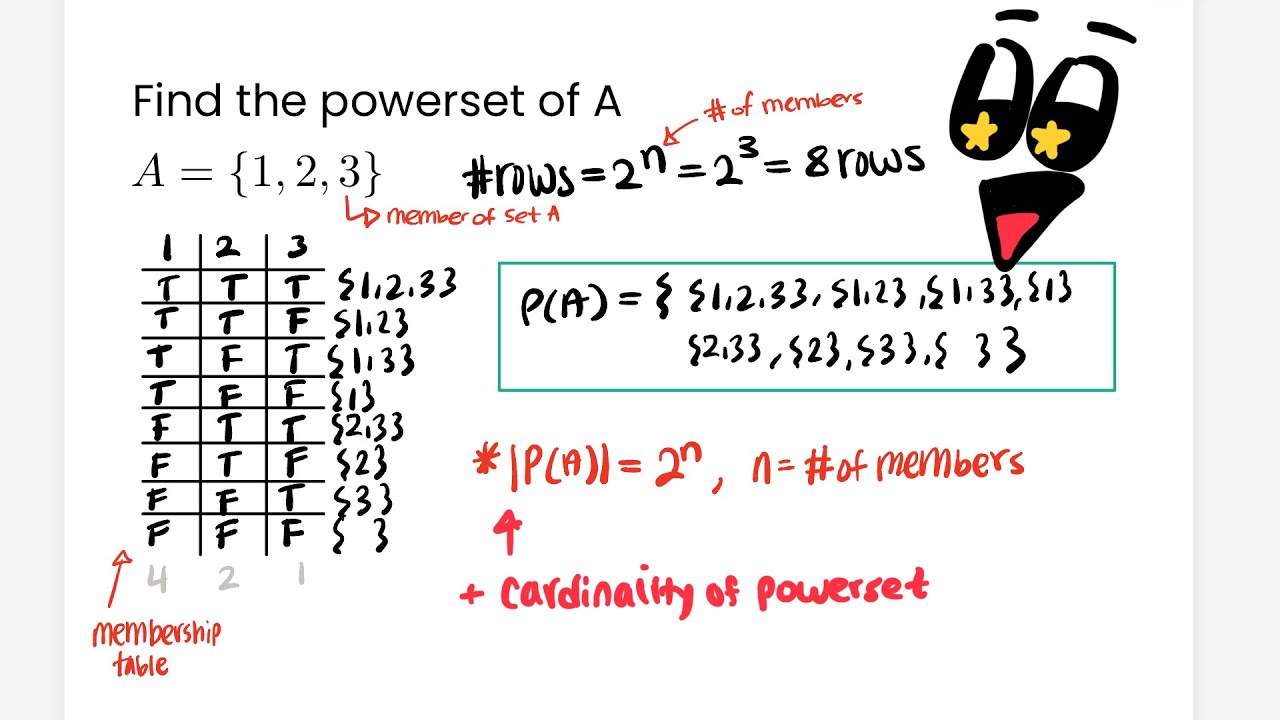 Find the powerset of A
# of members
A = {1, 2, 3}
#rows = 2^n = 2^3 = 8 rows
member of set A
1 2 3
T T T {1,2,3}
T T F {1,2}
T F T {1,3}
T F F {1}
F T T {2,3}
F T F {2}
F F T {3}
F F F { }
4 2 1
membership
table
P(A) = { {1,2,3}, {1,2}, {1,3}, {1}
{2,3}, {2}, {3}, { } }
* |P(A)| = 2^n, n = # of members
+ cardinality of powerset